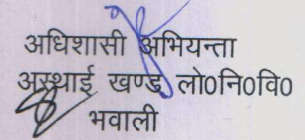 अधिशासी अभियन्ता
अस्थाई खण्ड लो0नि0वि0
भवाली